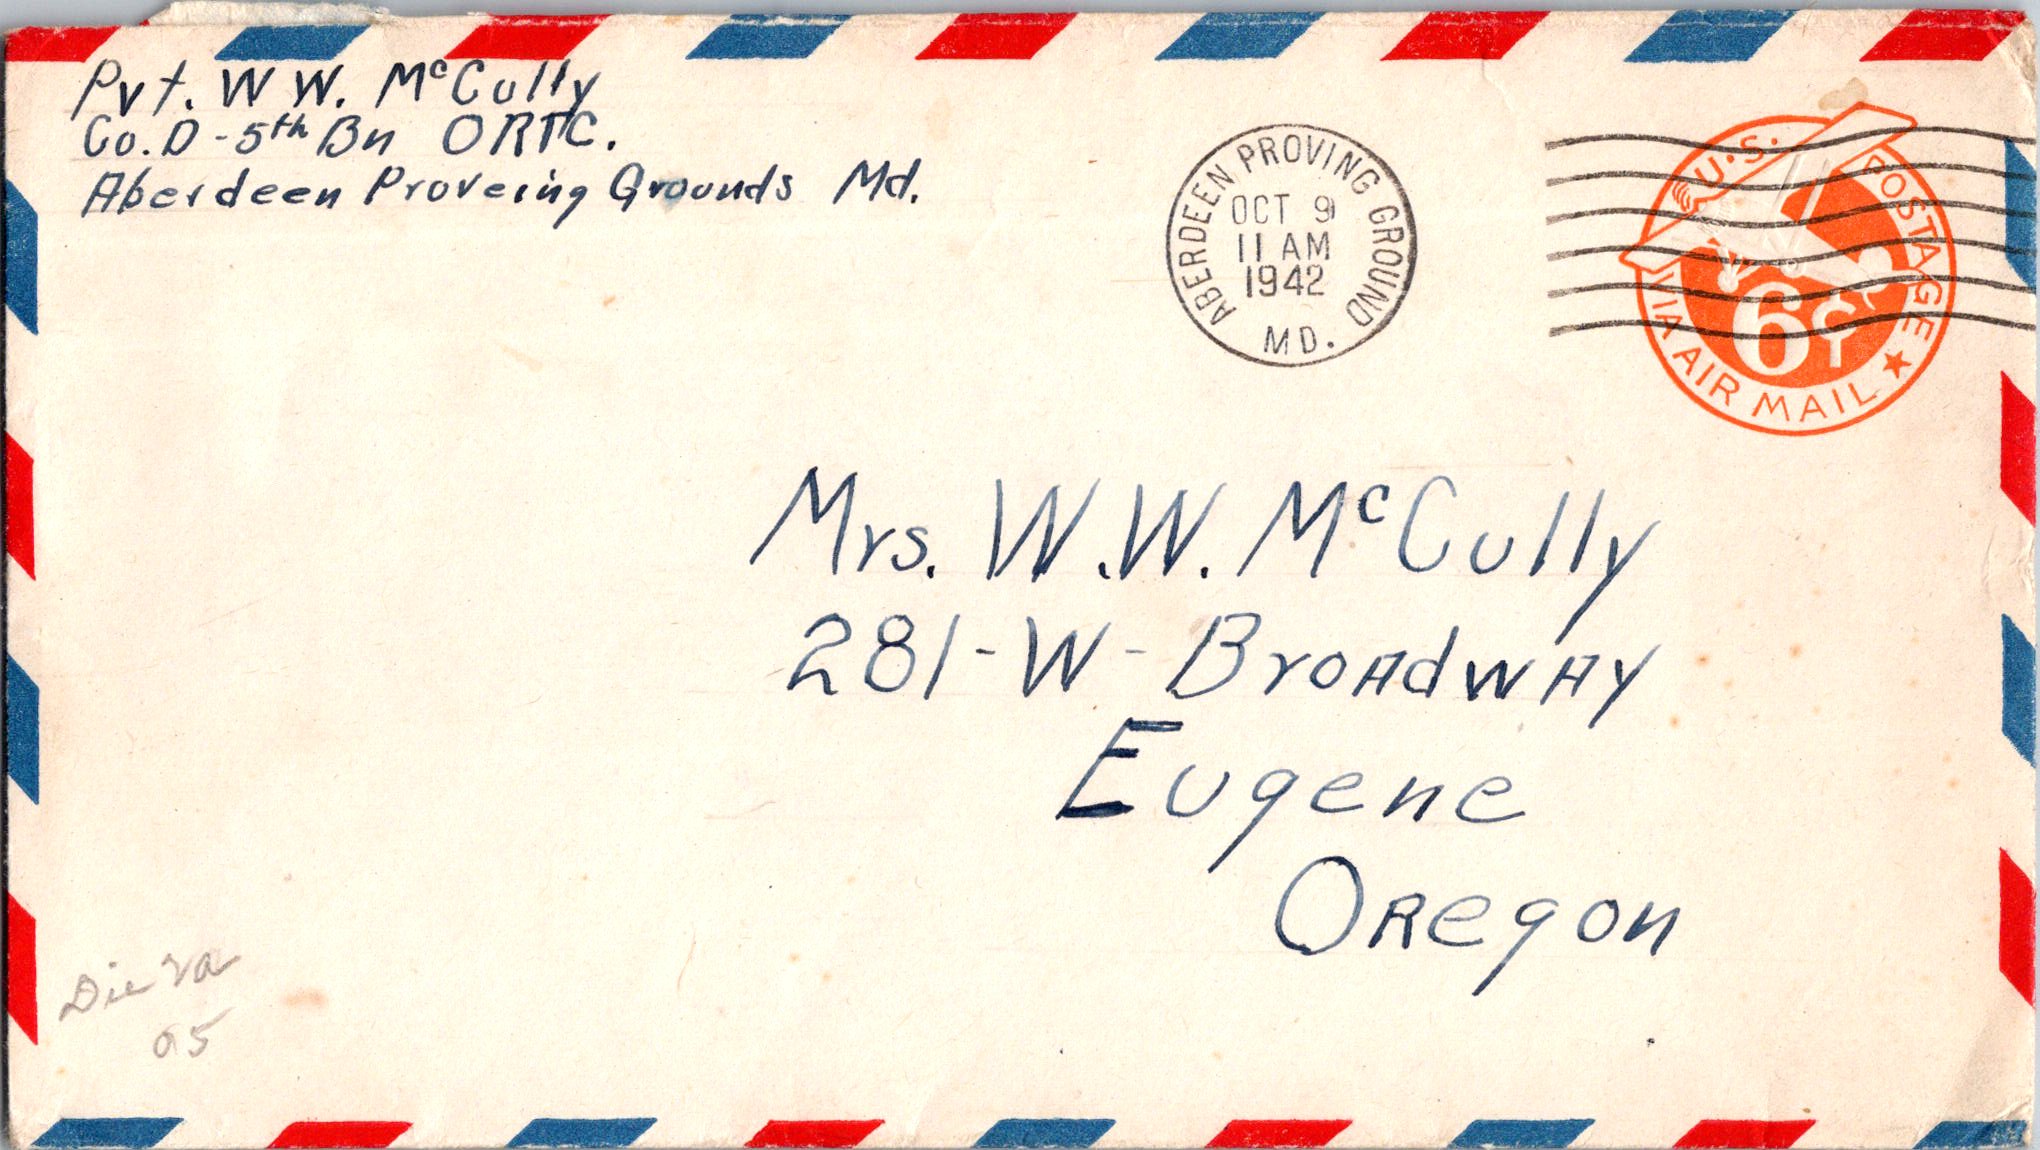 Pvt. W W. McCully
Co. D - 5th Bn ORTC.
Aberdeen Proveing Grounds Md.
ABERDEEN PROVING GROUND
OCT 9
11 AM
1942
MD.
U.S. POSTAGE
6¢
VIA AIR MAIL
Mrs. W.W. McCully
281-W-Broadway
Eugene
Oregon
Die 2a
05